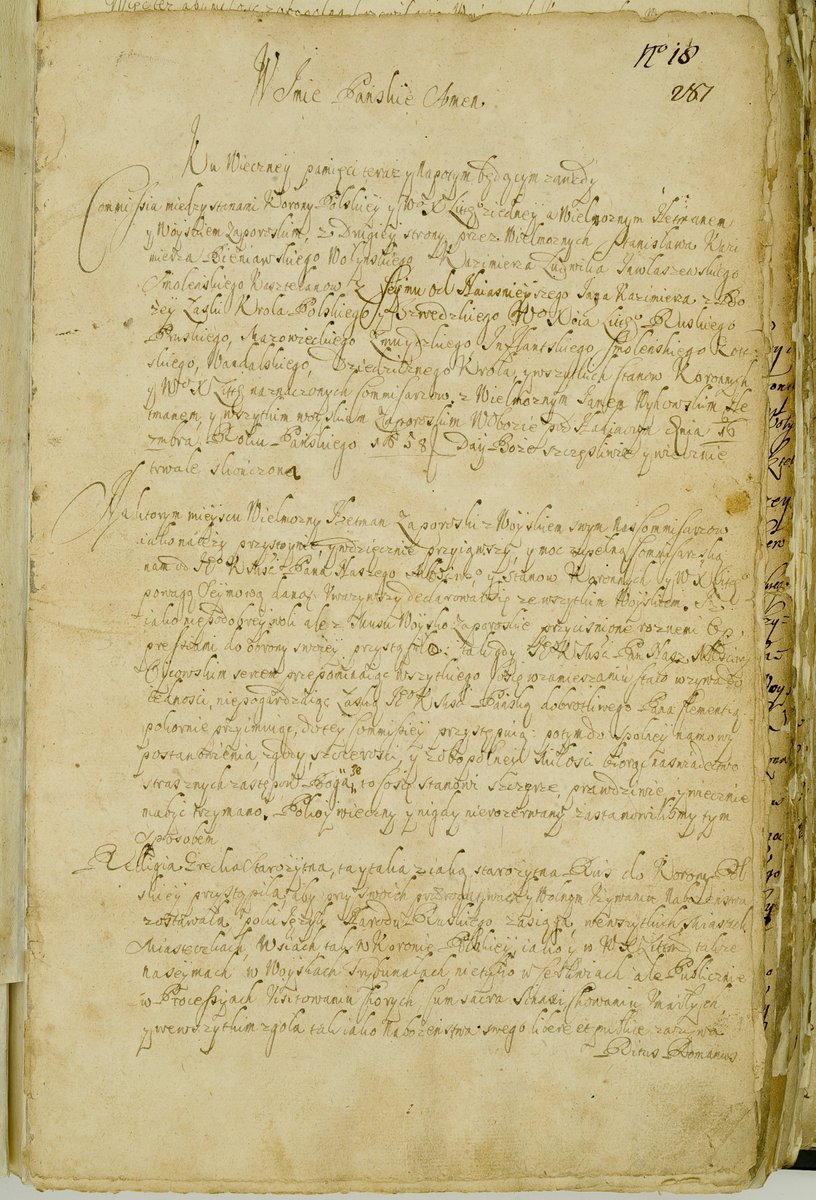 No 18
287
W Imie Panskie Amen
Ku Wieczney pamięci teraz y Napotym będącym zawzdy
Commissia między stanami Korony Polskiey y Wo X Littgo z iedney a Wielmoznym Hetmanem
y Woyskiem Zaporoskim, z Drugiey strony przez Wielmoznych Stanisława Kazi
mierza Bieniawskiego Wołynskiego Kazimierza Ludwika Jewłaszewskiego
Smolenskiego Kasztelanow z Seymu od Naiasnieyszego Jana Kazimierza z Bo
zey Łaski Krola Polskiego Szwedzkiego Wo Xcia Littgo Ruskiego
Pruskiego, Mazowieckiego Zmuydzkiego Inflantskiego Smolenskiego
skiego, Wandalskiego, Dziedzicznego Krola, y wszytkich stanow Koronnych
y Wo X Littgo naznaczonych Commisarzow, z Wielmoznym Janem Wyhowskim He
tmanem, y wszytkim woyskiem Zaporoskim W Obozie pod Hadiaczem Dnia 16
7mbra Roku Panskiego 1658 Day Boże szczęsliwie y wiecznie
trwale skonczona
Na ktorym mieyscu Wielmozny Hetman Zaporoski z Woyskiem swym Nas Commisarzow
iako nalezy przystoynie, y wdzięcznie przyiąwszy, y moc zupełną Commisarską
nam od JeoKMsci Pana Naszego y Stanow Koronnych y W X Littgo
powagą Seymową daną, zwazywszy declarował się ze wszytkim Woyskiem. Iz
iako nie z dobrey woli ale z Musu Woysko Zaporoskie przycisnione roznemi op
pressiami do obrony swoiey przystąpiło: tak gdy JeoKMsc Pan Nasz Miłosciwy
Oycowskim sercem przepomniawszy wszytkiego co się w zamieszaniu stało wzywa do
iednosci, nie pogardzaiąc Łaską JeoKMsci Panską dobrotliwego Pana Clementią
pokornie przyimuiąc, do tey Commissiey przystępuią: potym do spolney namowy
postanowienia zgody, szczerosci, y zobopolney Miłosci biorąc na swiadectwo
strasznych zastępow Boga, że to co się stanowi szczerze, prawdziwie y wiecznie
ma być trzymano. Pokoy wieczny y nigdy nierozerwany zastanowilismy tym
sposobem
Religia Grecka Starozytna, ta y taka z iaką starozytna Rus do Korony Pol
skiey przystąpiła, aby przy swoich praerogatywach y Wolnym Uzywaniu Nabozenstwa
zostawała, poki ięzyk Narodu Ruskiego zasiąga we wszytkich Miastach
Miasteczkach, Wsiach tak w Koronie Polskiey iako y w W X Littm także
na seymach w Woyskach Trybunałach nie tylko w Cerkwiach ale Publicznie
w Processyach Visitowaniu Chorych cum sacra Synaxi Chowaniu Umarłych
y we wszytkim zgoła tak iako Nabozenstwa swego libere et publice zazywa
Ritus Romanus